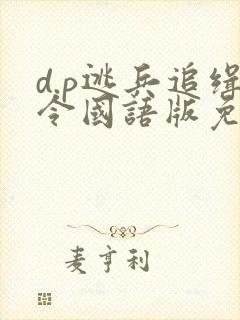 d.p逃兵追缉
令國語版免
麦亨利